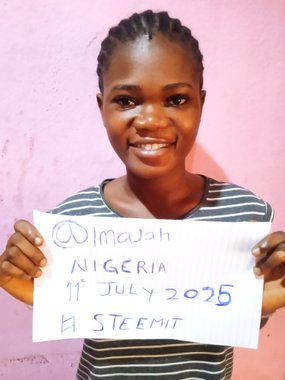 @Imajah
NIGERIA
11° JULY 2025
# STEEMIT